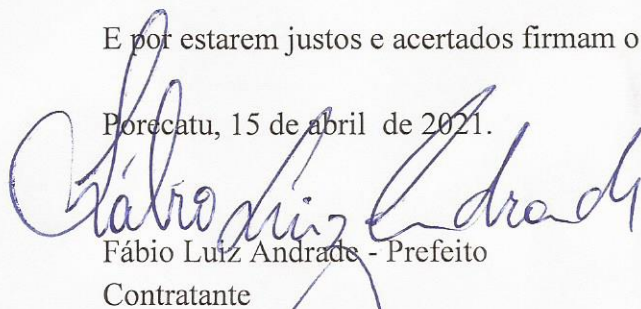 E por estarem justos e acertados firmam o
Porecatu, 15 de abril  de 2021.
Fábio Luiz Andrade
Fábio Luiz Andrade - Prefeito
Contratante